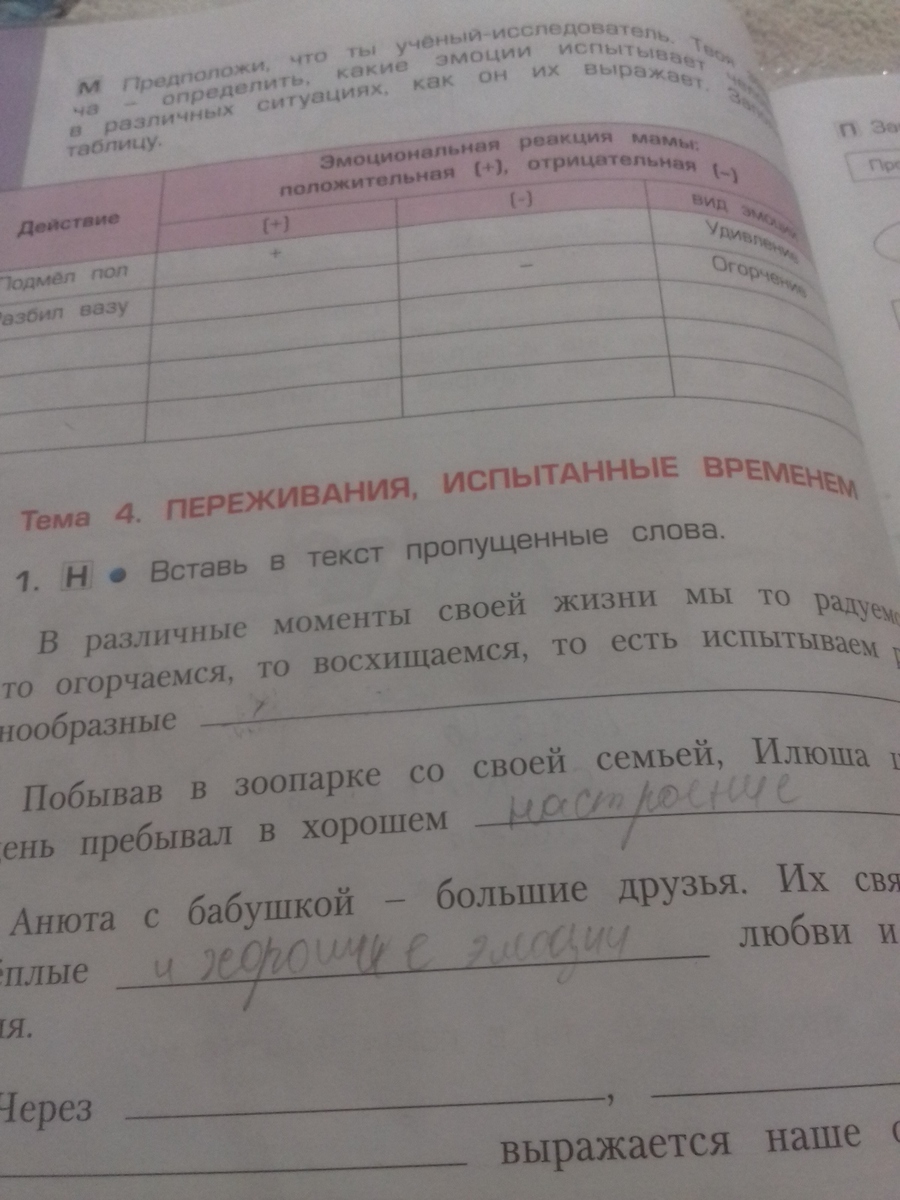 М Предположи, что ты учёный-исследователь. Твоя
ча – определить, какие эмоции испытывает
в различных ситуациях, как он их выражает.
таблицу.
Эмоциональная реакция мамы:
положительная (+), отрицательная (–)
Действие
(+) (-) вид эмоции
Подмёл пол + Удивление
Разбил вазу – Огорчение
Тема 4. ПЕРЕЖИВАНИЯ, ИСПЫТАННЫЕ ВРЕМЕНЕМ
1. Н • Вставь в текст пропущенные слова.
В различные моменты своей жизни мы то радуемс
то огорчаемся, то восхищаемся, то есть испытываем р
нообразные
Побывав в зоопарке со своей семьей, Илюша ц
день пребывал в хорошем настроение
Анюта с бабушкой – большие друзья. Их свя
ёплые и хорошие эмоции любви и
ия.
Через ,
выражается наше
П За
Пр